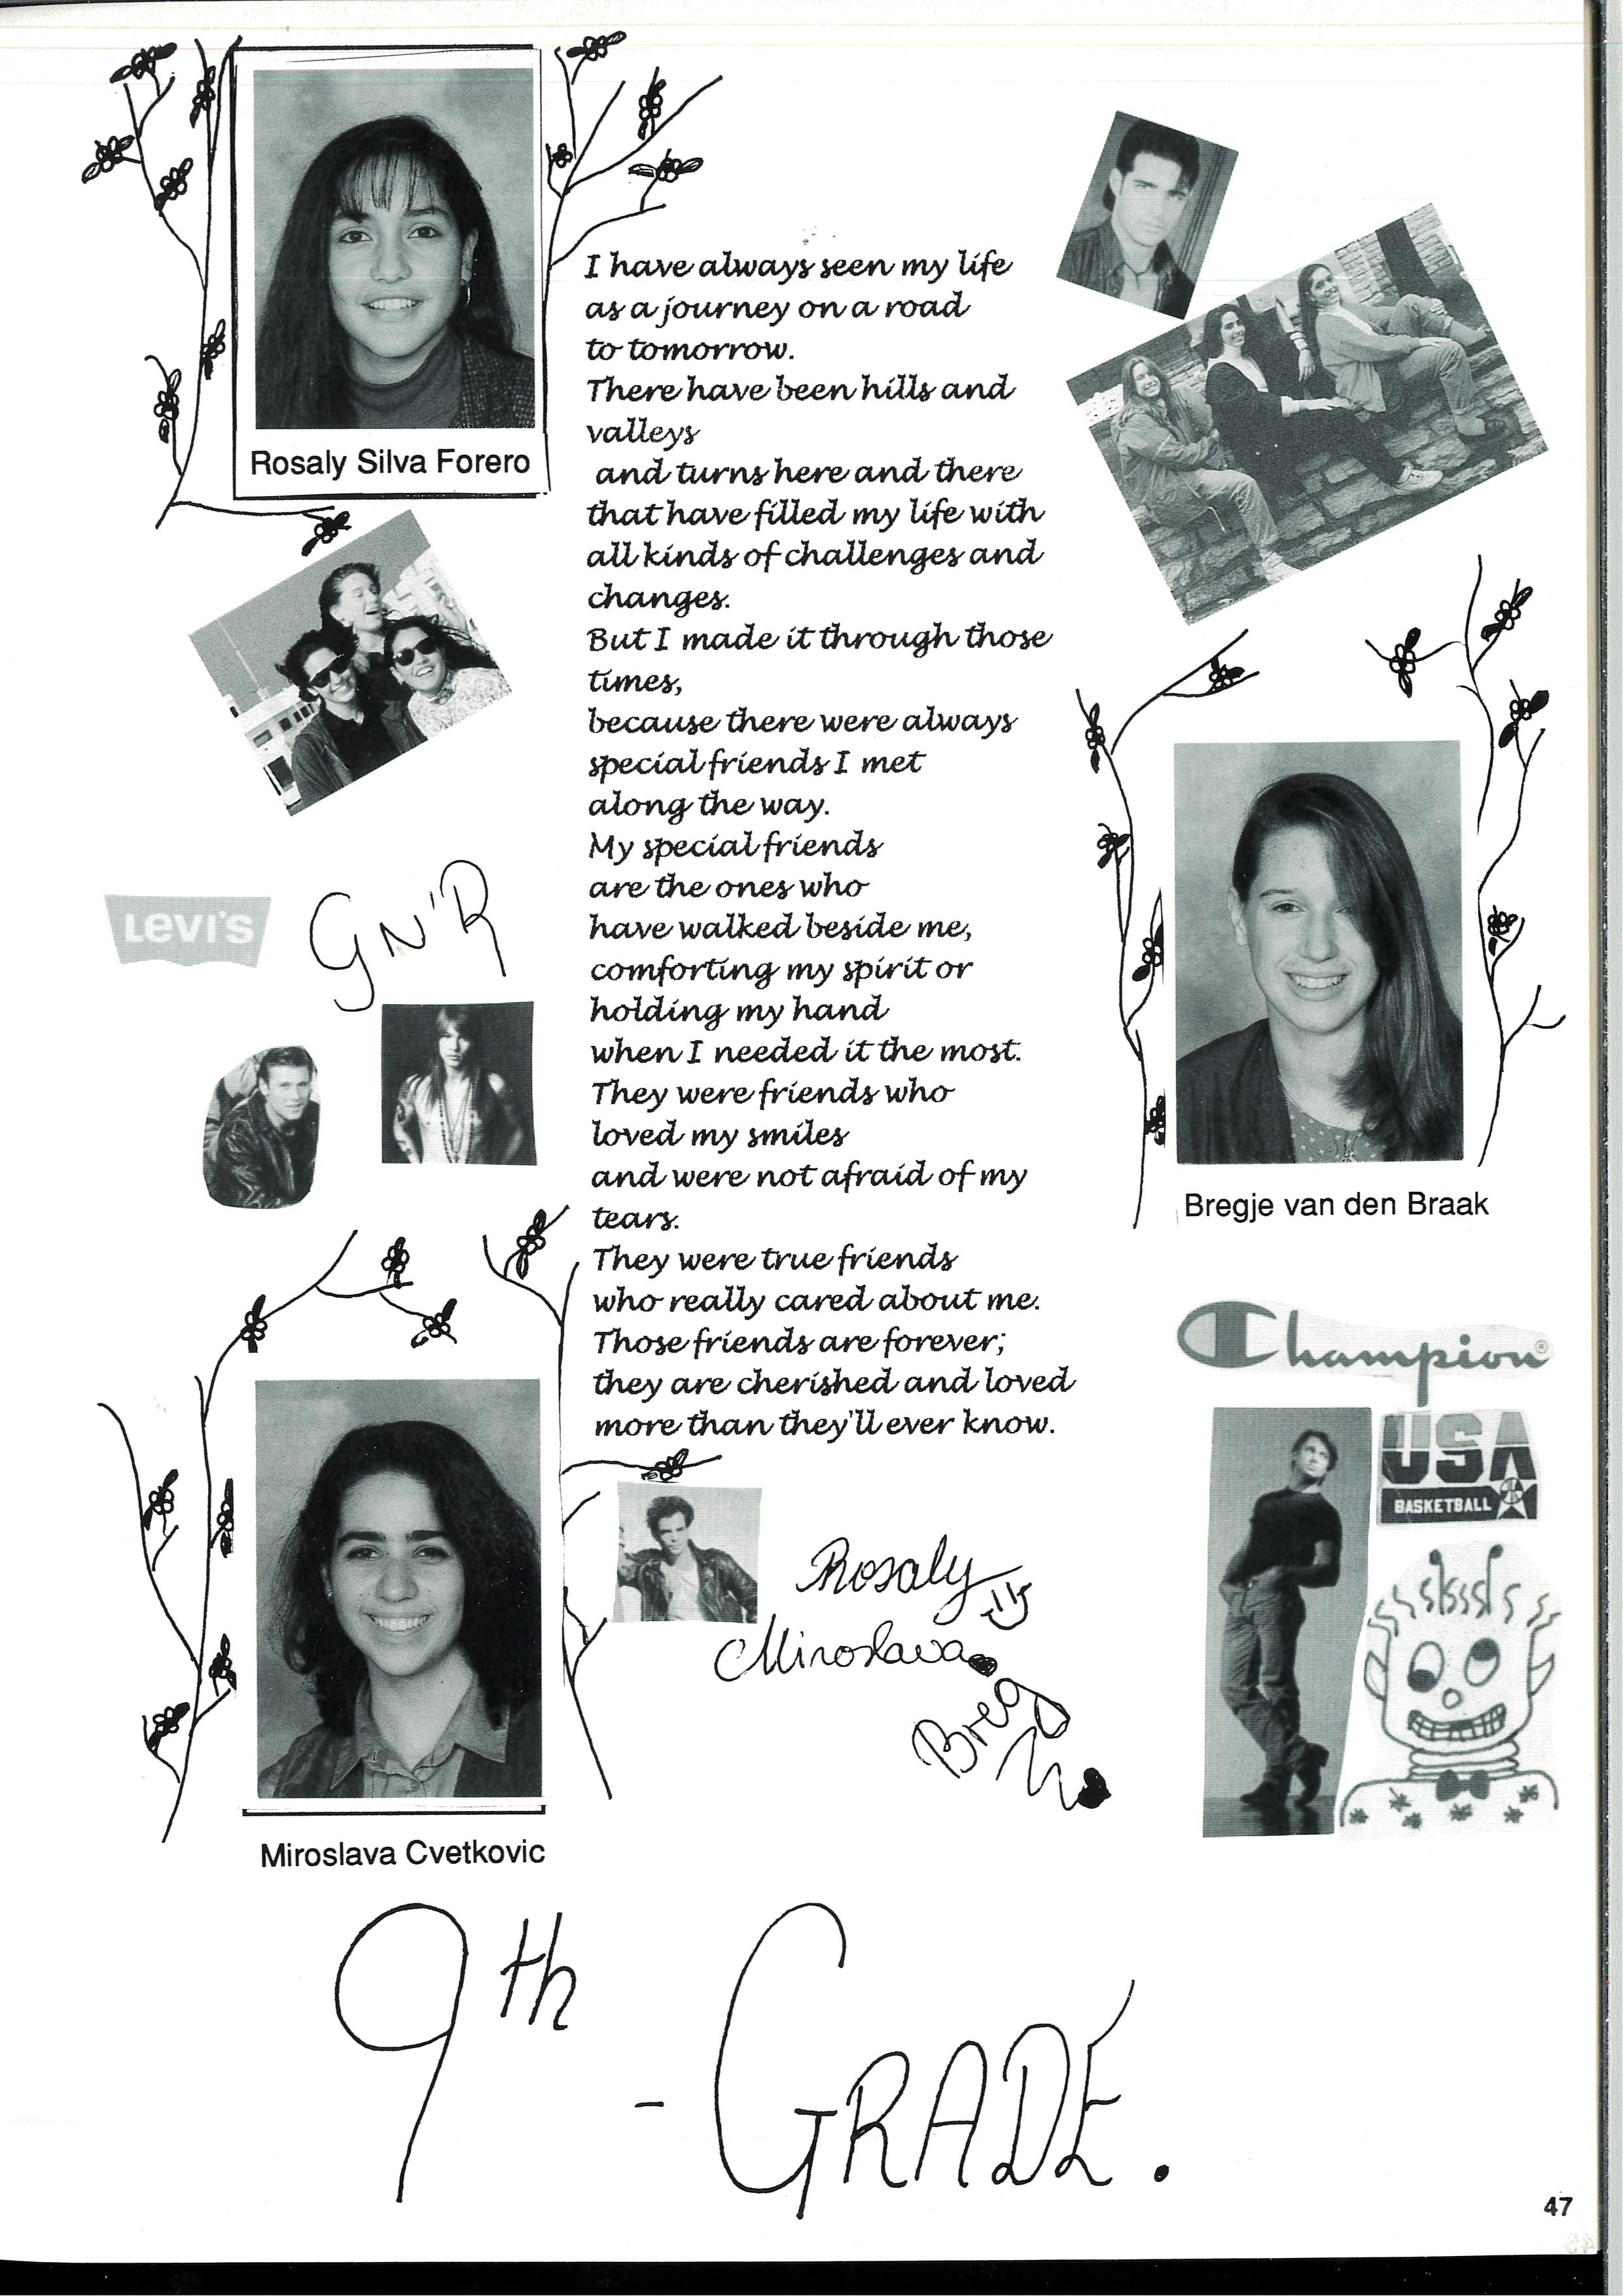 Rosaly Silva Forero
I have always seen my life
as a journey on a road
to tomorrow.
There have been hills and
valleys
and turns here and there
that have filled my life with
all kinds of challenges and
changes.
But I made it through those
times,
because there were always
special friends I met
along the way.
My special friends
are the ones who
have walked beside me,
comforting my spirit or
holding my hand
when I needed it the most.
They were friends who
loved my smiles
and were not afraid of my
tears.
They were true friends
who really cared about me.
Those friends are forever;
they are cherished and loved
more than they'll ever know.
LEVI'S
GN'R
Bregje van den Braak
Champion®
USA
BASKETBALL
Rosaly
Miroslava
Breg
Miroslava Cvetkovic
9th - GRADE.
47